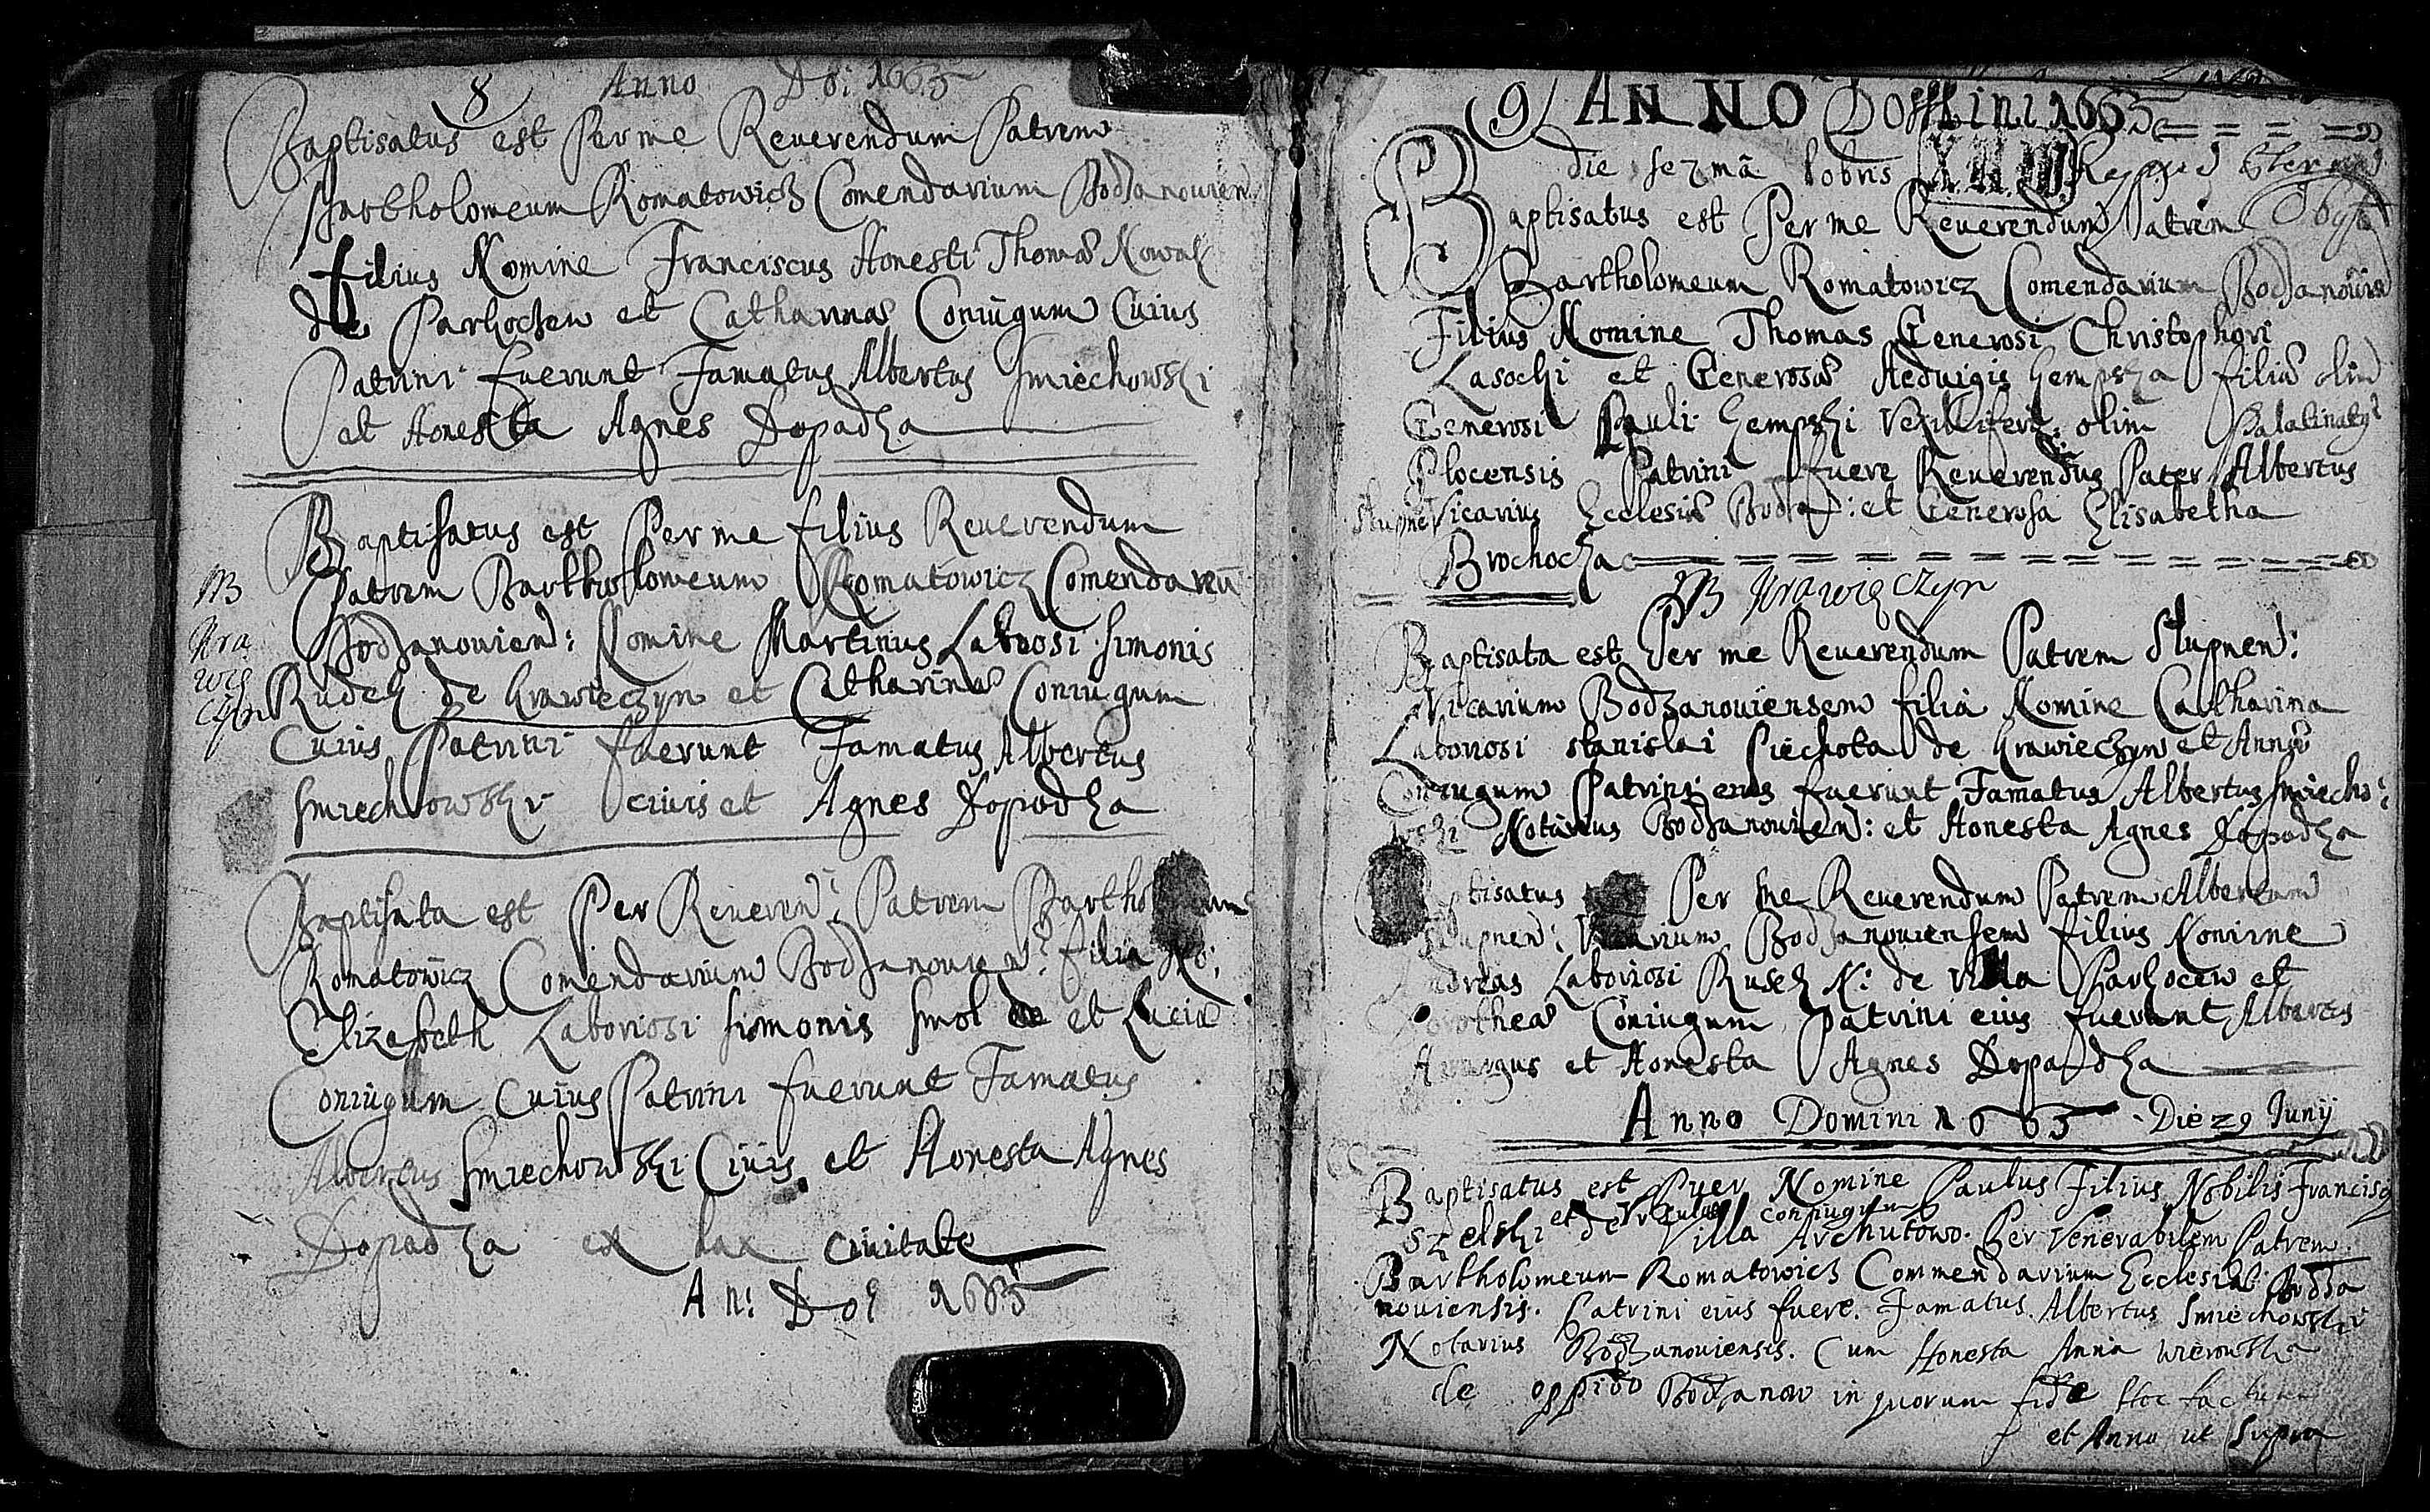 8 Anno Dō: 1665
Baptisatus est Per me Reuerendum Patrem
Bartholomeum Romatowicz Comendarium Bodzanouien
filius Nomine Franciscus Honesti Thomæ Nowak
de Parkoczew et Catharinæ Coniugum Cuius
Patrini fuerunt Famatus Albertus Smiechowski
et Honesta Agnes Dopadka
Baptisatus est Per me filius Reuerendum
Patrem Bartholomeum Romatowicz Comendariū
Bodzanouien: Nomine Martinus Laboriosi Simonis
NB
Kra
wię
czyn
Rudek de Krawieczyn et Catharinæ Coniugum
Cuius Patrini fuerunt Famatus Albertus
Smiechowski ciuis et Agnes Dopadka
Baptisata est Per Reueren: Patrem
Romatowicz Comendarium Bodzanouien: filia No:
Elizabeth Laboriosi Simonis Smol et Luciæ
Coniugum Cuius Patrini fuerunt Famatus
Albertus Smiechowski Ciuis et Honesta Agnes
Dopadka ex hac ciuitate
An: Doi 1665
9 ANNO Domini 1665
die
Baptisatus est Per me Reuerendum Patrem Obyt
Bartholomeum Romatowicz Comendarium Bodzanouien
Filius Nomine Thomas Generosi Christophori
Lasocki et Generosæ Heduigis Kempska filiæ olim
Generosi Pauli Kempski Vexilliferi olim Palatinatus
Plocensis Patrini fuere Reuerendus Pater Albertus
Slupnen Vicarius Ecclesiæ Bodza: et Generosa Elisabetha
Brochocka
NB Krawięczyn
Baptisata est Per me Reuerendum Patrem Slupnen:
Vicarium Bodzanouiensem filia Nomine Catharina
Laboriosi Stanislai Piechota de Krawieczyn et Annæ
Coniugum Patrini eius fuerunt Famatus Albertus Smiecho:
wski Notarius Bodzanouien: et Honesta Agnes Dopadka
Baptisatus Per me Reuerendum Patrem Albertum
Slupnen: Vicarium Bodzanouiensem filius Nomine
Andreas Laboriosi Rusek N: de Villa Parkocew et
Dorotheæ Coniugum Patrini eius fuerunt Albertus
et Honesta Agnes Dopadka
Anno Domini 1665 Die 29 Junij
Baptisatus est Puer Nomine Paulus Filius Nobilis Francisci
et Vrsulæ coniugum
Szelski de Villa Archutowo. Per Venerabilem Patrem
Bartholomeum Romatowicz Commendarium Ecclesiæ Bodza
nouiensis. Patrini eius fuere. Famatus Albertus Smiechowski
Notarius Bodzanouiensis. Cum Honesta Anna Wieronska
de oppido Bodzanow in quorum fide hoc factum
et Anno ut Supra